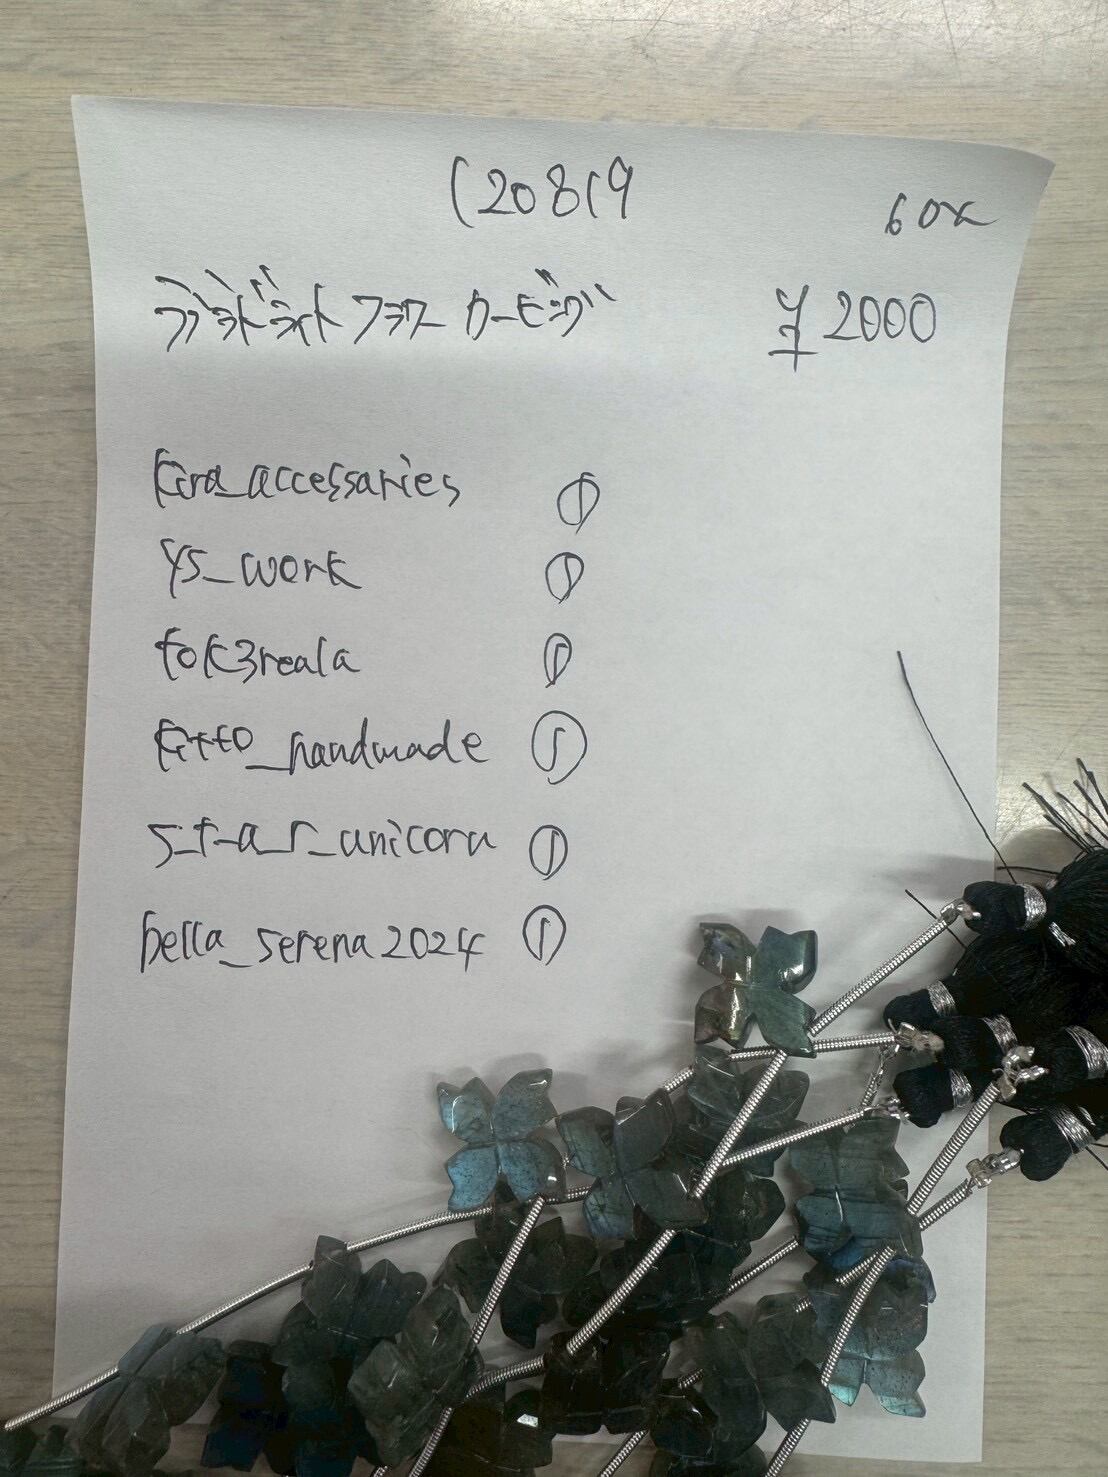 120819
60%
ラブラドライト フラワー カービング ¥2000
kira_accessaries ①
ys_work ①
tok3reala ①
kitto_handmade ①
s_t_a_r_unicorn ①
bella_serena2024 ①